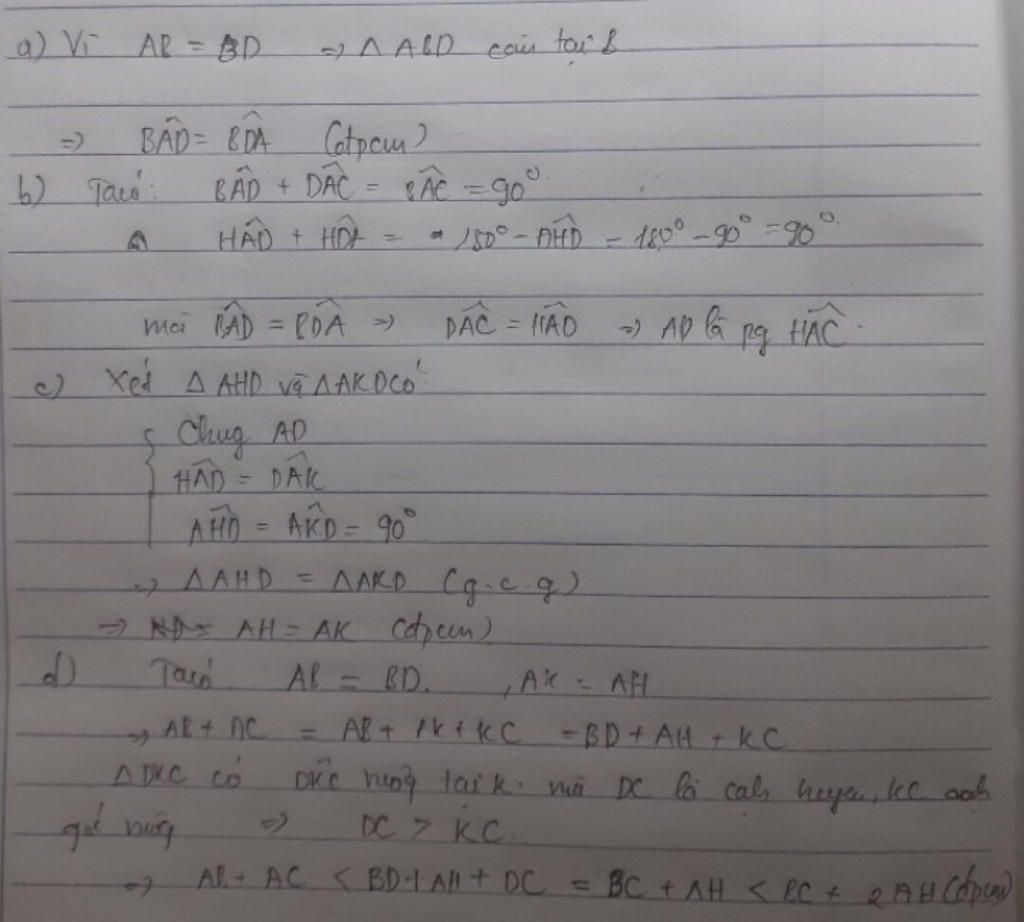 a) Vì AB = BD => △ ABD cân tại B
=> BÂD = BD̂A (đpcm)
b) Ta có: BÂD + DÂC = BÂC = 90°
HÂD + HD̂A = 180° - AĤD = 180° - 90° = 90°
mà BÂD = BD̂A => DÂC = HÂD => AD là pg HÂC.
c) Xét △ AHD và △AKD có
{ Chug AD
HÂD = DÂK
AĤD = AK̂D = 90°
=> △AHD = △AKD (g.c.g)
=> AH = AK (đpcm)
d) Ta có. AB = BD. , AK = AH
=> AB + AC = AB + AK + KC = BD + AH + KC
△DKC có DK̂C vuông tại K. mà DC là cah huyền, KC cah
góc vuông => DC > KC.
=> AB + AC < BD + AH + DC = BC + AH < BC + 2AH (đpcm)